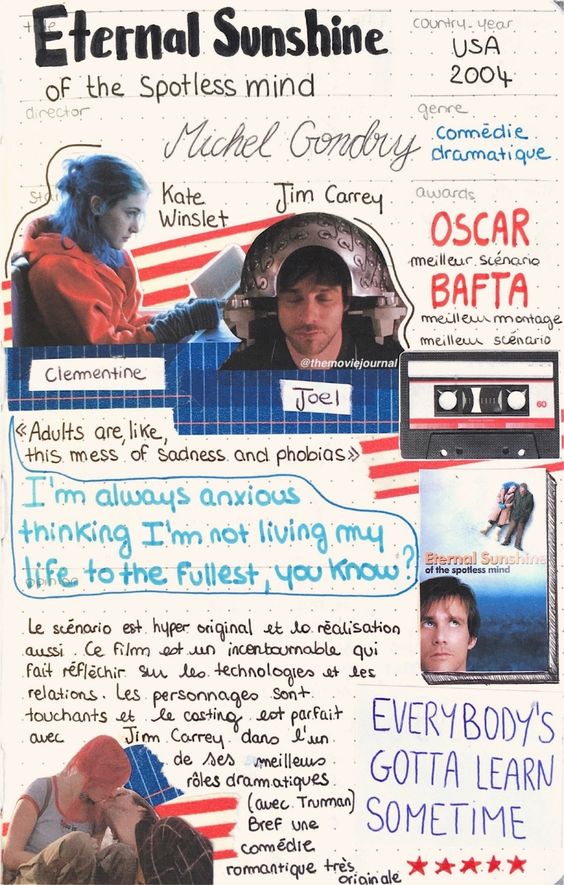 title
Eternal Sunshine
of the Spotless mind
country-year
USA
2004
director
Michel Gondry
genre
comédie
dramatique
Kate
Winslet
Jim Carrey
awards
OSCAR
meilleur scénario
BAFTA
meilleur montage
meilleur scénario
@themoviejournal
Clementine
Joel
60
«Adults are, like,
this mess of sadness and phobias»
I'm always anxious
thinking I'm not living my
life to the fullest, you know?
Eternal Sunshine
of the spotless mind
opinion
Le scénario est hyper original et la réalisation
aussi. Ce film est un incontournable qui
fait réfléchir sur les technologies et les
relations. Les personnages sont
touchants et le casting est parfait
avec Jim Carrey dans l'un
de ses meilleurs
rôles dramatiques.
(avec Truman)
Bref une
comédie
romantique très
originale
EVERYBODY'S
GOTTA LEARN
SOMETIME